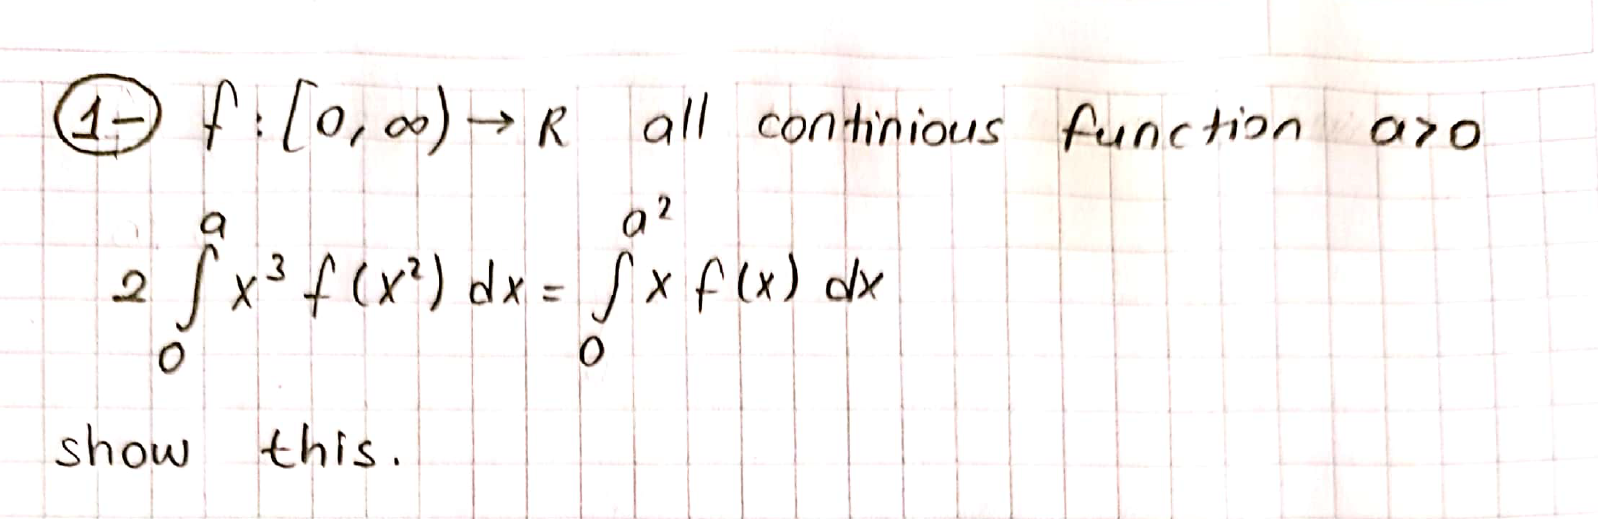 1- f : [0, ∞) → R all continious function a>0
2 ∫₀ᵃ x³ f(x²) dx = ∫₀^a² x f(x) dx
show this.